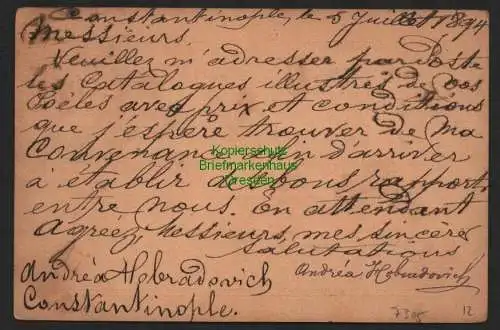 Constantinople, le 5 Juillet 1894
Messieurs,
Veuillez m'adresser par Poste
les Catalogues illustrés de vos
Poêles avec prix et conditions
que j'espère trouver de ma
Convenance afin d'arriver
à établir de bons rapports
entre nous. En attendant
Agréez, Messieurs, mes sincères
salutations
Andréa Hobradovich
Andréa Hobradovich
Constantinople.
Kopierschutz
Briefmarkenhaus
Dresden
12